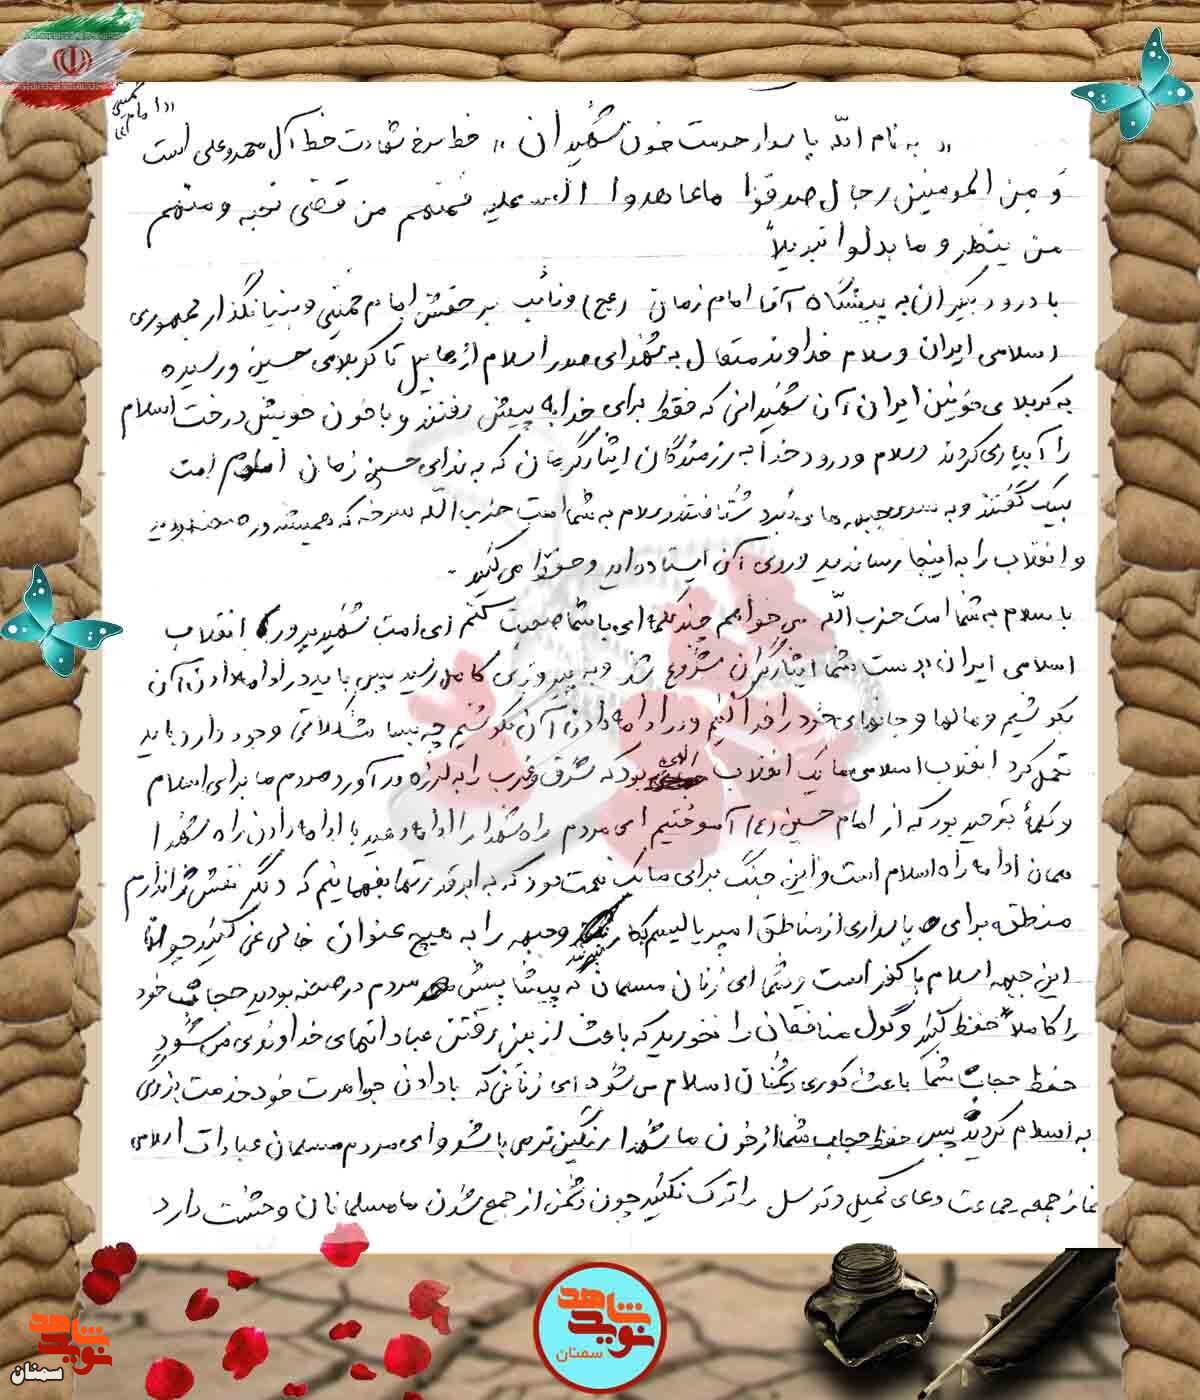 «امام خمینی»
« به نام الله پاسدار حرمت خون شهیدان » خط سرخ شهادت خط آل محمد و علی است
وَ مِن المومنین رجال صدقوا ما عاهدوا الله علیه فمنهم من قضی نحبه و منهم
من ینتظر و ما بدلوا تبدیلاً
با درود بیکران به پیشگاه آقا امام زمان (عج) و نائب بر حقش امام خمینی و بنیانگذار جمهوری
اسلامی ایران و سلام خداوند متعال به شهدای صدر اسلام از هابیل تا کربلای حسین و رسیده
به کربلای خونین ایران آن شهیدانی که فقط برای خدا به پیش رفتند و با خون خویش درخت اسلام
را آبیاری کردند و سلام و درود خدا به رزمندگان ایثارگرمان که به ندای حسین زمان امام امت
لبیک گفتند و به سوی جبهه های نبرد شتافتند و سلام به شما امت حزب الله که همیشه در صحنه بودید
و انقلاب را به اینجا رساندید و روی آن ایستاده اید و حفظ می کنید .
با سلام به شما امت حزب الله می خواهم چند کلمه ای با شما صحبت کنم ای امت شهیدپرور انقلاب
اسلامی ایران بدست شما ایثارگران شروع شد و به پیروزی کامل رسید پس باید در ادامه دادن آن
بکوشیم و مالها و جانهای خود را فدا کنیم و در ادامه دادن آن بکوشیم چه بسا مشکلاتی وجود دارد باید
تحمل کرد انقلاب اسلامی ما یک انقلاب الهی بود که شرق و غرب را به لرزه در آورد مردم ما برای اسلام
و کلمهٔ توحید بود که از امام حسین (ع) آموختیم ای مردم راه شهدا را ادامه دهید با ادامه دادن راه شهدا
همان ادامه راه اسلام است و این جنگ برای ما یک نعمت بود که به ابرقدرتها بفهمانیم که دیگر نقش ژاندارم
منطقه برای پاسداری از مناطق امپریالیسم بکار نمی‌رند و جبهه را به هیچ عنوان خالی نمی کنید چون
این جبهه اسلام با کفر است و شما ای زنان مسلمان که پیشاپیش مردم در صحنه بودید حجاب خود
را کاملاً حفظ کنید و گول منافقان را نخورید که باعث از بین رفتن عبادتهای خداوندی می شود
حفظ حجاب شما باعث کوری دشمنان اسلام می شود ای زنانی که با دادن جواهرت خود خدمت بزرگی
به اسلام کردید پس حفظ حجاب شما از خون ما شهدا رنگین تر می باشد و ای مردم مسلمان عبادات اسلامی
نماز جمعه جماعت دعای کمیل و توسل را ترک نکنید چون دشمن از جمع شدن ما مسلمانان وحشت دارد
نوید شاهد
سمنان
نوید شاهد
سمنان